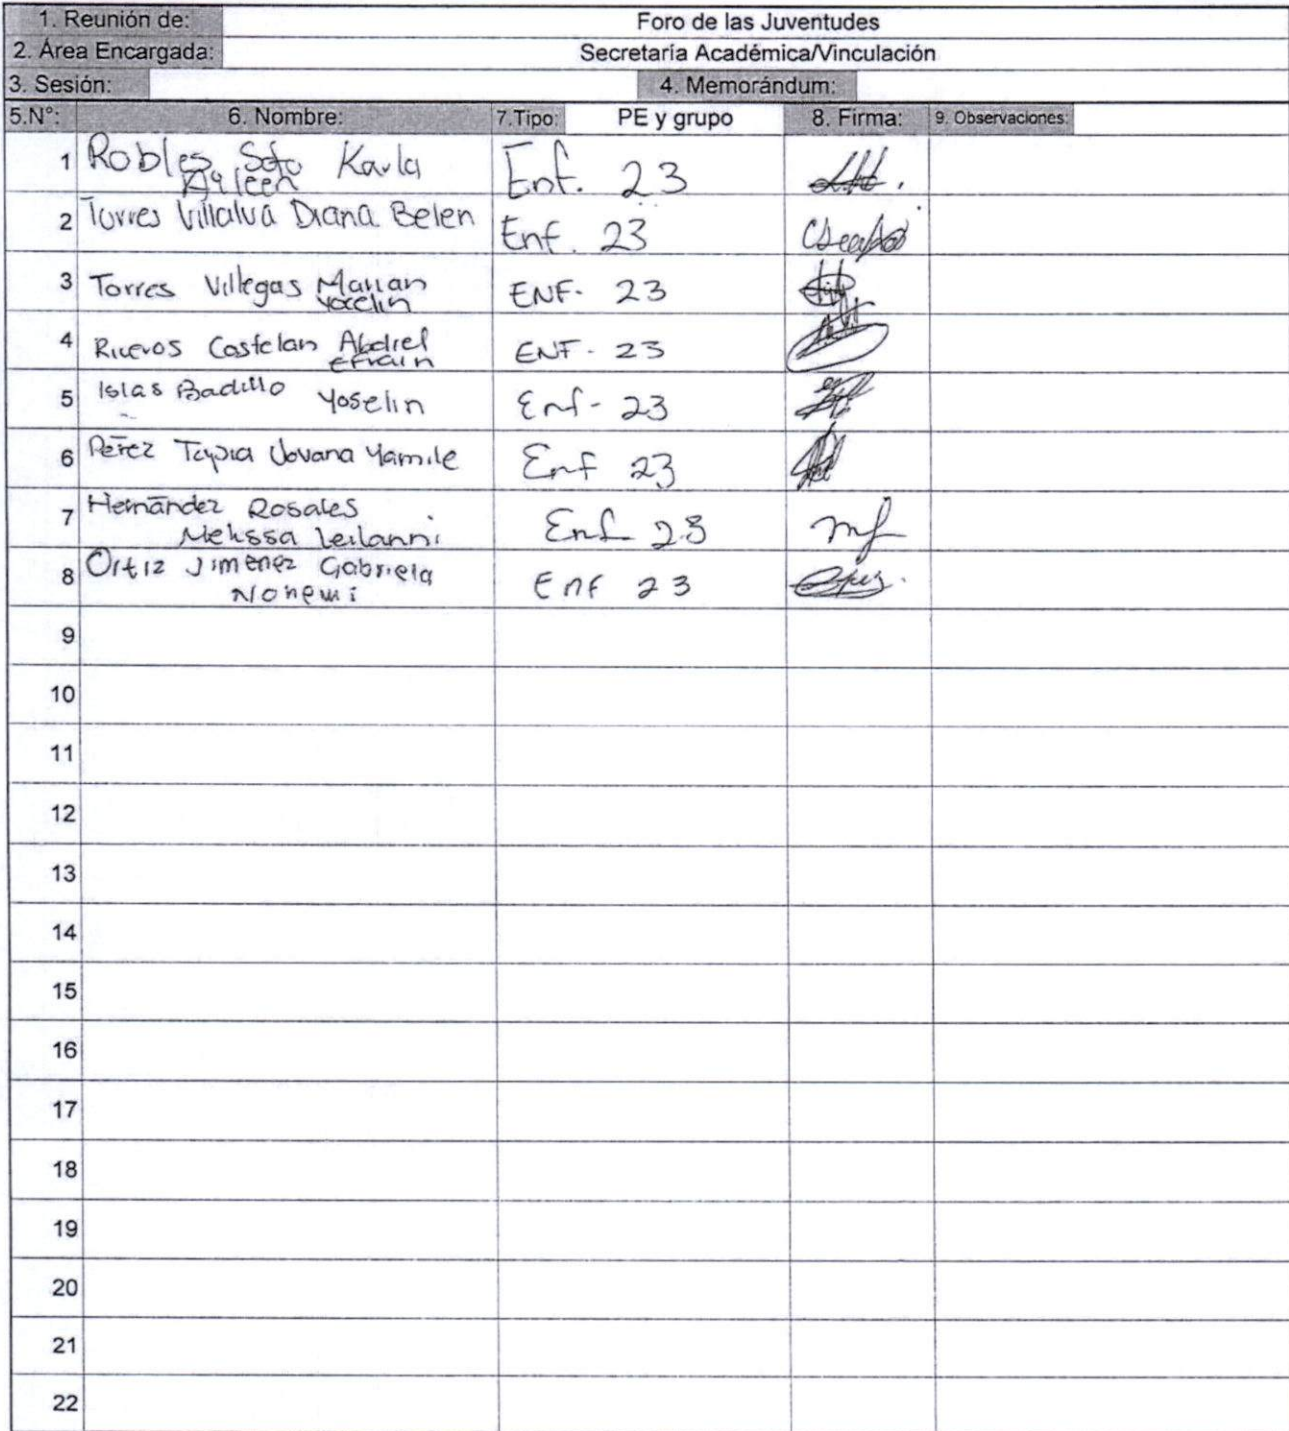 1. Reunión de: Foro de las Juventudes
2. Área Encargada: Secretaría Académica/Vinculación
3. Sesión: 4. Memorándum:
5.N°: 6. Nombre: 7.Tipo: PE y grupo 8. Firma: 9. Observaciones:
1 Robles Soto Karla Enf. 23
2 Torres Villalva Diana Belen Enf. 23
3 Torres Villegas Marian ENF- 23
Yocelin
4 Riveros Castelan Abdiel ENF- 23
Efrain
5 Islas Badillo Yoselin Enf- 23
6 Pérez Tapia Jovana Yamile Enf 23
7 Hernández Rosales
Melissa Leilanni Enf 23
8 Ortiz Jimenez Gabriela Enf 23
Nohemi
9
10
11
12
13
14
15
16
17
18
19
20
21
22